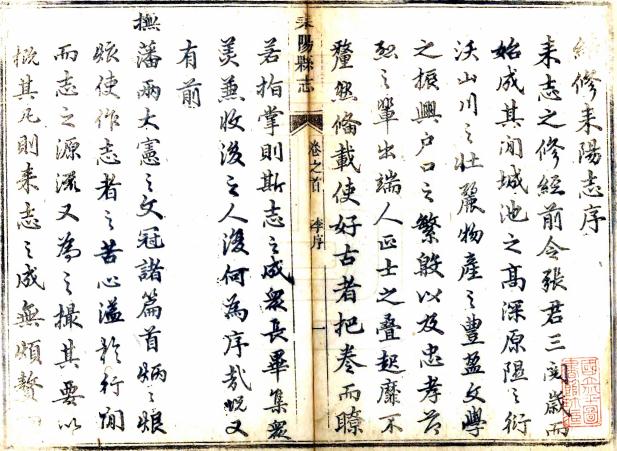 修耒陽志序
耒志之修經前令張君三閱歲而
始成其間城池之高深原隰之衍
沃山川之壯麗物產之豐盈文學
之振興戶口之繁殷以及忠孝節
烈之輩出端人正士之疊起靡不
釐然備載使好古者把卷而瞭
耒陽縣志
卷之首
李序
一
若指掌則斯志之成眾長畢集眾
美兼收後之人復何為序哉況又
有前
撫藩兩大憲之文冠諸篇首炳炳烺
烺使作志者之苦心溢於行間
而志之源流又為之撮其要以
概其凡則耒志之成無煩贅